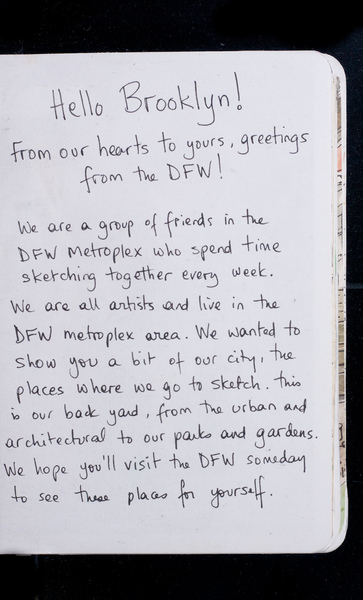 Hello Brooklyn!
From our hearts to yours, greetings
from the DFW!
We are a group of friends in the
DFW Metroplex who spend time
sketching together every week.
We are all artists and live in the
DFW metroplex area. We wanted to
show you a bit of our city, the
places where we go to sketch. This
is our back yard, from the urban and
architectural to our parks and gardens.
We hope you'll visit the DFW someday
to see these places for yourself.